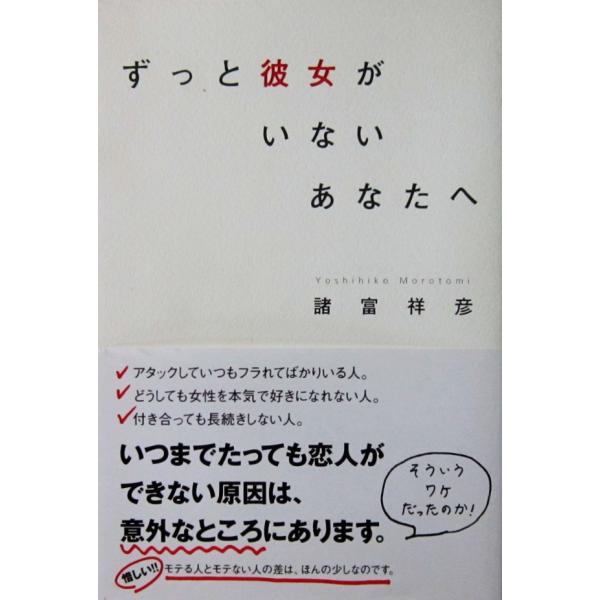 ずっと彼女が
いない
あなたへ
Yoshihiko Morotomi
諸富祥彦
アタックしていつもフラれてばかりいる人。
どうしても女性を本気で好きになれない人。
付き合っても長続きしない人。
いつまでたっても恋人が
できない原因は、
意外なところにあります。
そういう
ワケ
だったのか!
惜しい!!
モテる人とモテない人の差は、ほんの少しなのです。